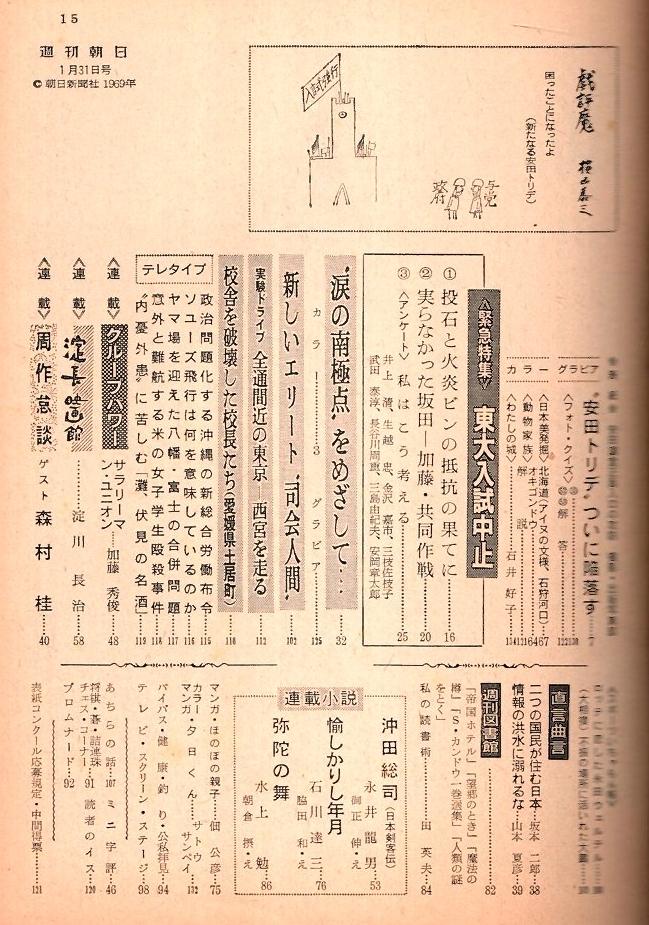 15
週刊朝日
1月31日号
© 朝日新聞社 1969年
戯評魔
困ったことになったよ
(新たなる安田トリデ)
入試強行
政府
グラビア
“安田トリデ”ついに陥落す……7
〈フォト・クイズ〉
解答
カラー
〈日本美発掘〉北海道(アイヌの文様、石狩河口)
〈動物家族〉オキゴンドウ
解説
〈わたしの城〉石井好子
〈緊急特集〉 東大入試中止
① 投石と火炎ビンの抵抗の果てに……16
② 実らなかった坂田―加藤・共同作戦……20
③ 〈アンケート〉 私はこう考える……25
井上清、生越忠、金沢嘉市、三枝佐枝子
武田泰淳、長谷川周恵、三島由紀夫、安岡章太郎
“涙の南極点”をめざして……32
カラー……3 グラビア……125
新しいエリート“司会人間”……102
実験ドライブ 全通間近の東京―西宮を走る……112
校舎を破壊した校長たち(愛媛県・土居町)……110
テレタイプ
政治問題化する沖縄の新総合労働布令……115
ソユーズ飛行は何を意味しているのか……116
ヤマ場を迎えた八幡・富士の合併問題……117
意外と難航する米の女子学生殴殺事件……118
“内憂外患”に苦しむ「灘、伏見の名酒」……119
〈連載〉 グループパワー サラリーマン・ユニオン……加藤秀俊……48
〈連載〉 淀長映画館……淀川長治……58
〈連載〉 周作怠談 ゲスト 森村桂……40
直言曲言
二つの国民が住む日本……坂本二郎……38
情報の洪水に溺れるな……山本夏彦……39
週刊図書館……82
「帝国ホテル」「望郷のとき」「魔法の
樽」「S・カンドウ一巻選集」「人類の謎
をとく」
私の読書術……田英夫……84
連載小説
沖田総司(日本剣客伝)
永井龍男……53
御正伸・え
愉しかりし年月
石川達三……76
脇田和・え
弥陀の舞
水上勉……86
朝倉摂・え
マンガ・ほのぼの親子……佃公彦……75
カラーマンガ・夕日くん……サトウサンペイ……132
バイパス・健康 釣り・公私拝見……94
テレビ・スクリーン・ステージ……98
あちらの話……107 ミニ字評……46
将棋・碁・詰連珠
チェス・コーナー……91 読者のイス……120
プロムナード……92
表紙コンクール応募規定・中間得票……121